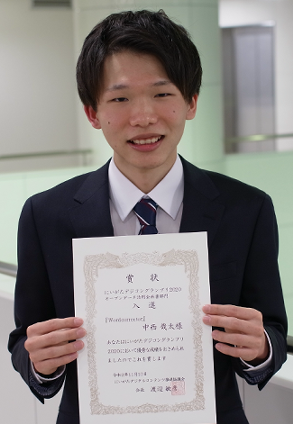 賞状
にいがたデジコングランプリ2020
オープンデータ活用企画書部門
入選
『Wonkemeter』
中西 哉太様
あなたはにいがたデジコングランプリ
2020において優秀な成績をおさめられ
ましたのでこれを賞します
にいがたデジタルコンテンツ推進協議会
会長 渡辺 敏彦